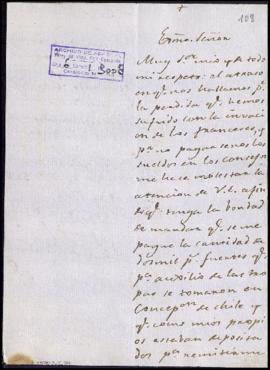 108
Exmo. Señor
Muy Sor. mio y de todo
mi respeto: el atraso
en q.e nos hallamos p.r
la perdida q.e hemos
sufrido con la invacion
de los franceses, y p.r
no pagarse los
sueldos en los
me hace molestar la
atencion de V.E. afin
de q.e tenga la bondad
de mandar q.e se me
pague la cantidad de
dosmil p.s fuertes q.e
p.a auxilio de las tro
pas se tomaron en
Concep.on de Chile y
q.e como mios propi
os estaban deposita
dos p.a remitirme